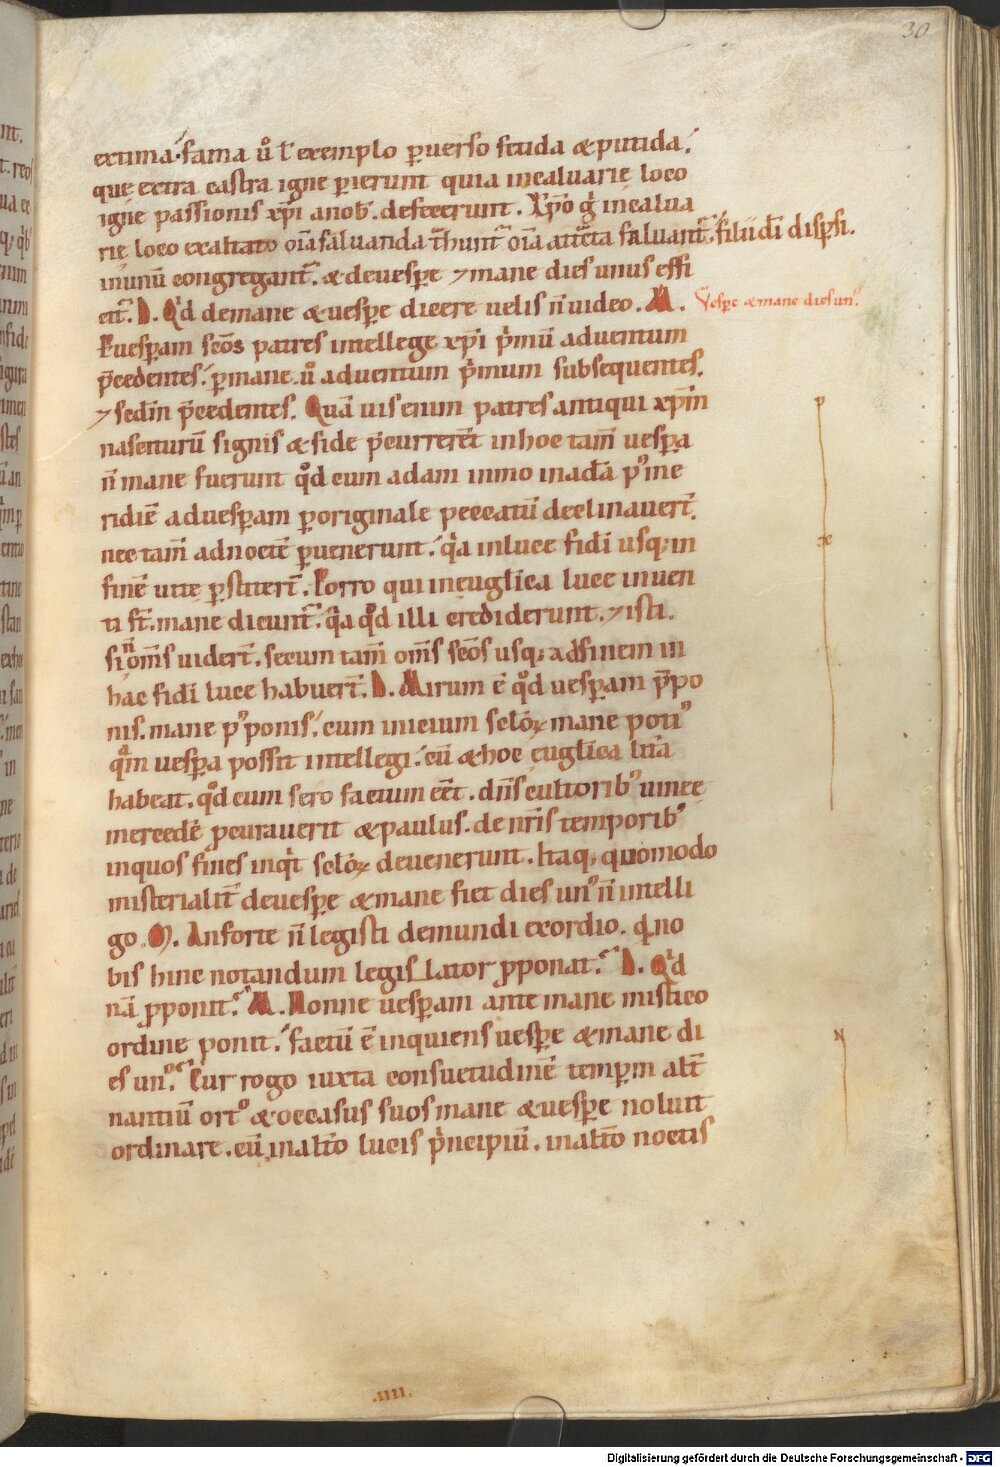 30
extima·fama ů ł exemplo ꝑuerso fetida & putida.
que extra castra igne ꝑierunt quia incaluarie loco
igne passionis xp̄i anob̄.defecerunt. Xp̄o ḡ incalua
rie loco exaltato oīa saluanda t̄hunt᷑ oīa att̄cta saluant᷑. filii dī disꝑsi.
inunū congregant᷑. & deuesꝑe ⁊ mane dies unus effi
cit᷑. D. Qd demane & uesꝑe dicere uelis n̄ uideo. M.
Vesꝑe & mane dies un᷒.
Puesꝑam sc̄os patres intellege xp̄i p̄mū aduentum
p̄cedentes. ꝑmane.ů aduentum p̄mum subsequentes.
⁊ sedīn p̄cedentes. Quāuis enim patres antiqui xp̄m
nasciturū signis & fide p̄currerēt inhoc tam̄ uesꝑa
n̄ mane fuerunt qd̊ cum adam immo inadā p᷒me
ridiē aduesꝑam ꝑoriginale peccatū declinauer̄t.
nec tam̄ adnoctē ꝑuenerunt. q̄a inluce fidī usq; in
finē uite ꝑstiter̄t. Porro qui ineuglica luce inuen
ti st̄. mane dicunt᷑. q̄a qd̊ illi crediderunt. ⁊ isti.
si n̄ om̄s uider̄t. secum tam̄ om̄s sc̄os usq; adfinem in
hac fidī luce habuer̄t. D. Mirum ē qd̊ uesꝑam p̄po
nis. mane p᷒ponis. cum inicium sclōꝝ mane poti᷒
qm̊ uesꝑa possit intellegi. cū & hoc euglica lr̄a
habeat. qd̊ cum sero factum eēt. dn̄s cultorib᷒ uinee
mercedē ꝓcurauerit & paulus. de nr̄is temporib᷒
inquos fines inq̄t sclōꝝ deuenerunt. Itaq; quomodo
misterialit᷑ deuesꝑe & mane fiet dies un᷒ n̄ intelli
go. M. Anforte n̄ legisti demundi exordio. qd no
bis hinc notandum legis lator ꝓponat. D. Qd
nā ꝓponit. M. Nonne uesꝑam ante mane mistico
ordine ponit. factū ē inquiens uesꝑe & mane di
es un᷒. Cur rogo iuxta consuetudinē temꝑm alt̄
nantiū ort᷒ & occasus suos mane & uesꝑe noluit
ordinare. cū inalt̄o lucis p̄ncipiū. inalt̄o noctis
.IIII.
Digitalisierung gefördert durch die Deutsche Forschungsgemeinschaft - DFG